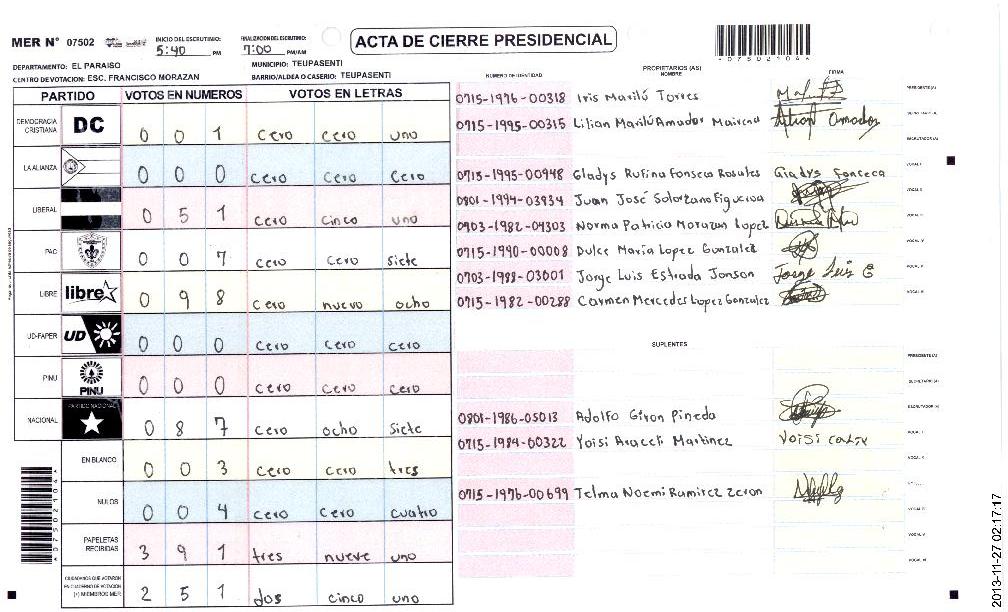 MER N° 07502
INICIO DEL ESCRUTINIO: 5:40 PM
FINALIZACION DEL ESCRUTINIO: 7:00 PM/AM
ACTA DE CIERRE PRESIDENCIAL
DEPARTAMENTO: EL PARAISO MUNICIPIO: TEUPASENTI
CENTRO DE VOTACION: ESC. FRANCISCO MORAZAN BARRIO/ALDEA O CASERIO: TEUPASENTI
PARTIDO VOTOS EN NUMEROS VOTOS EN LETRAS
DEMOCRACIA CRISTIANA DC 0 0 1 cero cero uno
LA ALIANZA 0 0 0 cero cero cero
LIBERAL 0 5 1 cero cinco uno
PAC 0 0 7 cero cero siete
LIBRE libre 0 9 8 cero nuevo ocho
UD-FAPER UD 0 0 0 cero cero cero
PINU PINU 0 0 0 cero cero cero
NACIONAL PARTIDO NACIONAL 0 8 7 cero ocho siete
EN BLANCO 0 0 3 cero cero tres
NULOS 0 0 4 cero cero cuatro
PAPELETAS RECIBIDAS 3 9 1 tres nueve uno
CIUDADANOS QUE VOTARON EN CUADERNO DE VOTACION (+) MIEMBROS MER 2 5 1 dos cinco uno
NUMERO DE IDENTIDAD PROPIETARIOS (AS) NOMBRE FIRMA
0715-1976-00318 Iris Marilú Torres PRESIDENTE(A)
0715-1995-00315 Lilian Marilú Amador Mairena SECRETARIO(A)
ESCRUTADOR (A)
0715-1995-00948 Gladys Rufina Fonseca Rosales Gladys Fonseca VOCAL I
0801-1994-03934 Juan José Solorzano Figueroa VOCAL II
0903-1982-04303 Norma Patricia Morazan Lopez
0715-1990-00008 Dulce María Lopez Gonzalez VOCAL IV
0703-1988-03001 Jorge Luis Estrada Jonson Jorge Luis E VOCAL V
0715-1982-00288 Carmen Mercedes Lopez Gonzalez VOCAL VI
SUPLENTES
PRESIDENTE (A)
SECRETARIO (A)
0801-1986-05013 Adolfo Giron Pineda ESCRUTADOR (A)
0715-1984-00322 Yoisi Araceli Martinez VOCAL I
VOCAL II
0715-1976-00699 Telma Noemi Ramirez Zeron
VOCAL IV
VOCAL V
VOCAL VI
2013-11-27 02:17:17